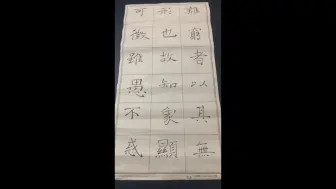 難窮者以其無
形也故知象顯
可徵雖愚不惑